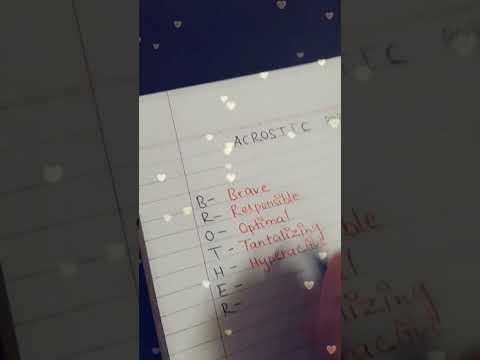 ACROSTIC
B - Brave
R - Responsible
O - Optimal
T - Tantalizing
H - Hyperactive
E -
R -